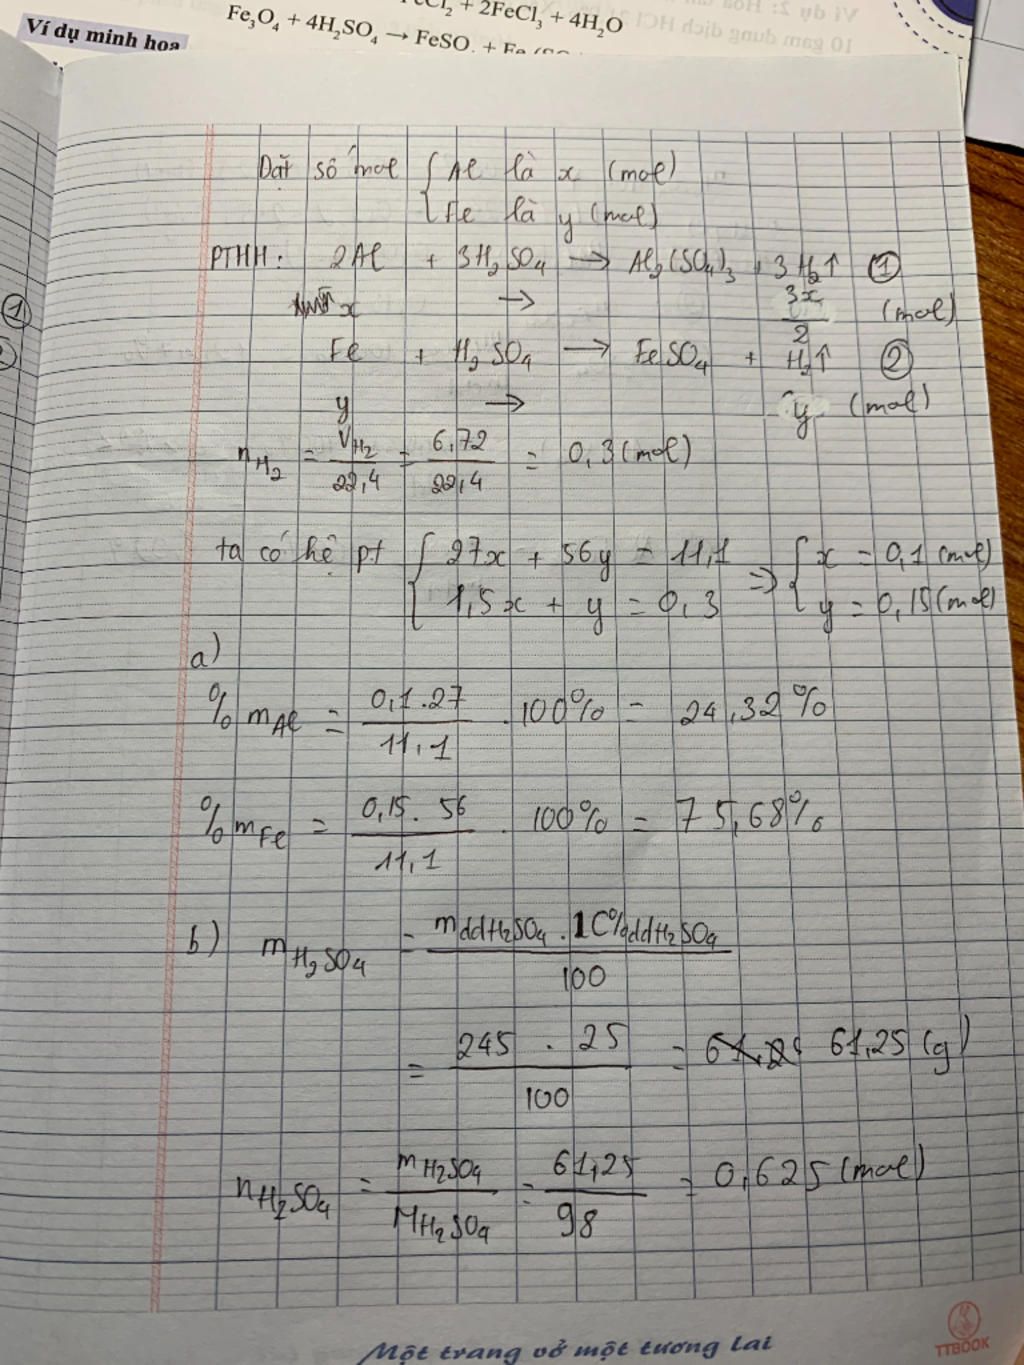 eCl₂ + 2FeCl₃ + 4H₂O
Fe₃O₄ + 4H₂SO₄ → FeSO₄ + Fe
Ví dụ minh hoạ
Đặt số mol { Al là x (mol)
{ Fe là y (mol)
PTHH: 2Al + 3H₂SO₄ → Al₂(SO₄)₃ + 3H₂↑ ①
x → 3x/2 (mol)
Fe + H₂SO₄ → FeSO₄ + H₂↑ ②
y → y (mol)
n_H₂ = V_H₂/22,4 = 6,72/22,4 = 0,3 (mol)
ta có hệ pt { 27x + 56y = 11,1 => { x = 0,1 (mol)
{ 1,5x + y = 0,3 { y = 0,15 (mol)
a)
% m_Al = 0,1.27/11,1 . 100% = 24,32%
% m_Fe = 0,15.56/11,1 . 100% = 75,68%
b) m_H₂SO₄ = mddH₂SO₄ . C%ddH₂SO₄/100
= 245 . 25/100 = 61,25 (g)
n_H₂SO₄ = m_H₂SO₄/M_H₂SO₄ = 61,25/98 = 0,625 (mol)
Một trang vở một tương lai
TTBOOK